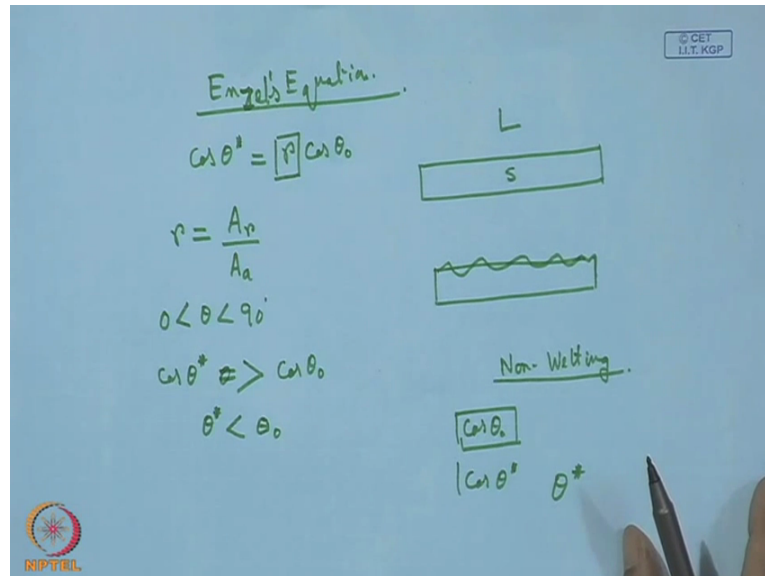 © CET
I.I.T. KGP
Enzel's Equation.
cos θ* = r cos θ₀
r = Aᵣ / Aₐ
0 < θ < 90°
cos θ* > cos θ₀
θ* < θ₀
L
S
Non-Wetting.
cos θ₀
|cos θ* θ*
NPTEL